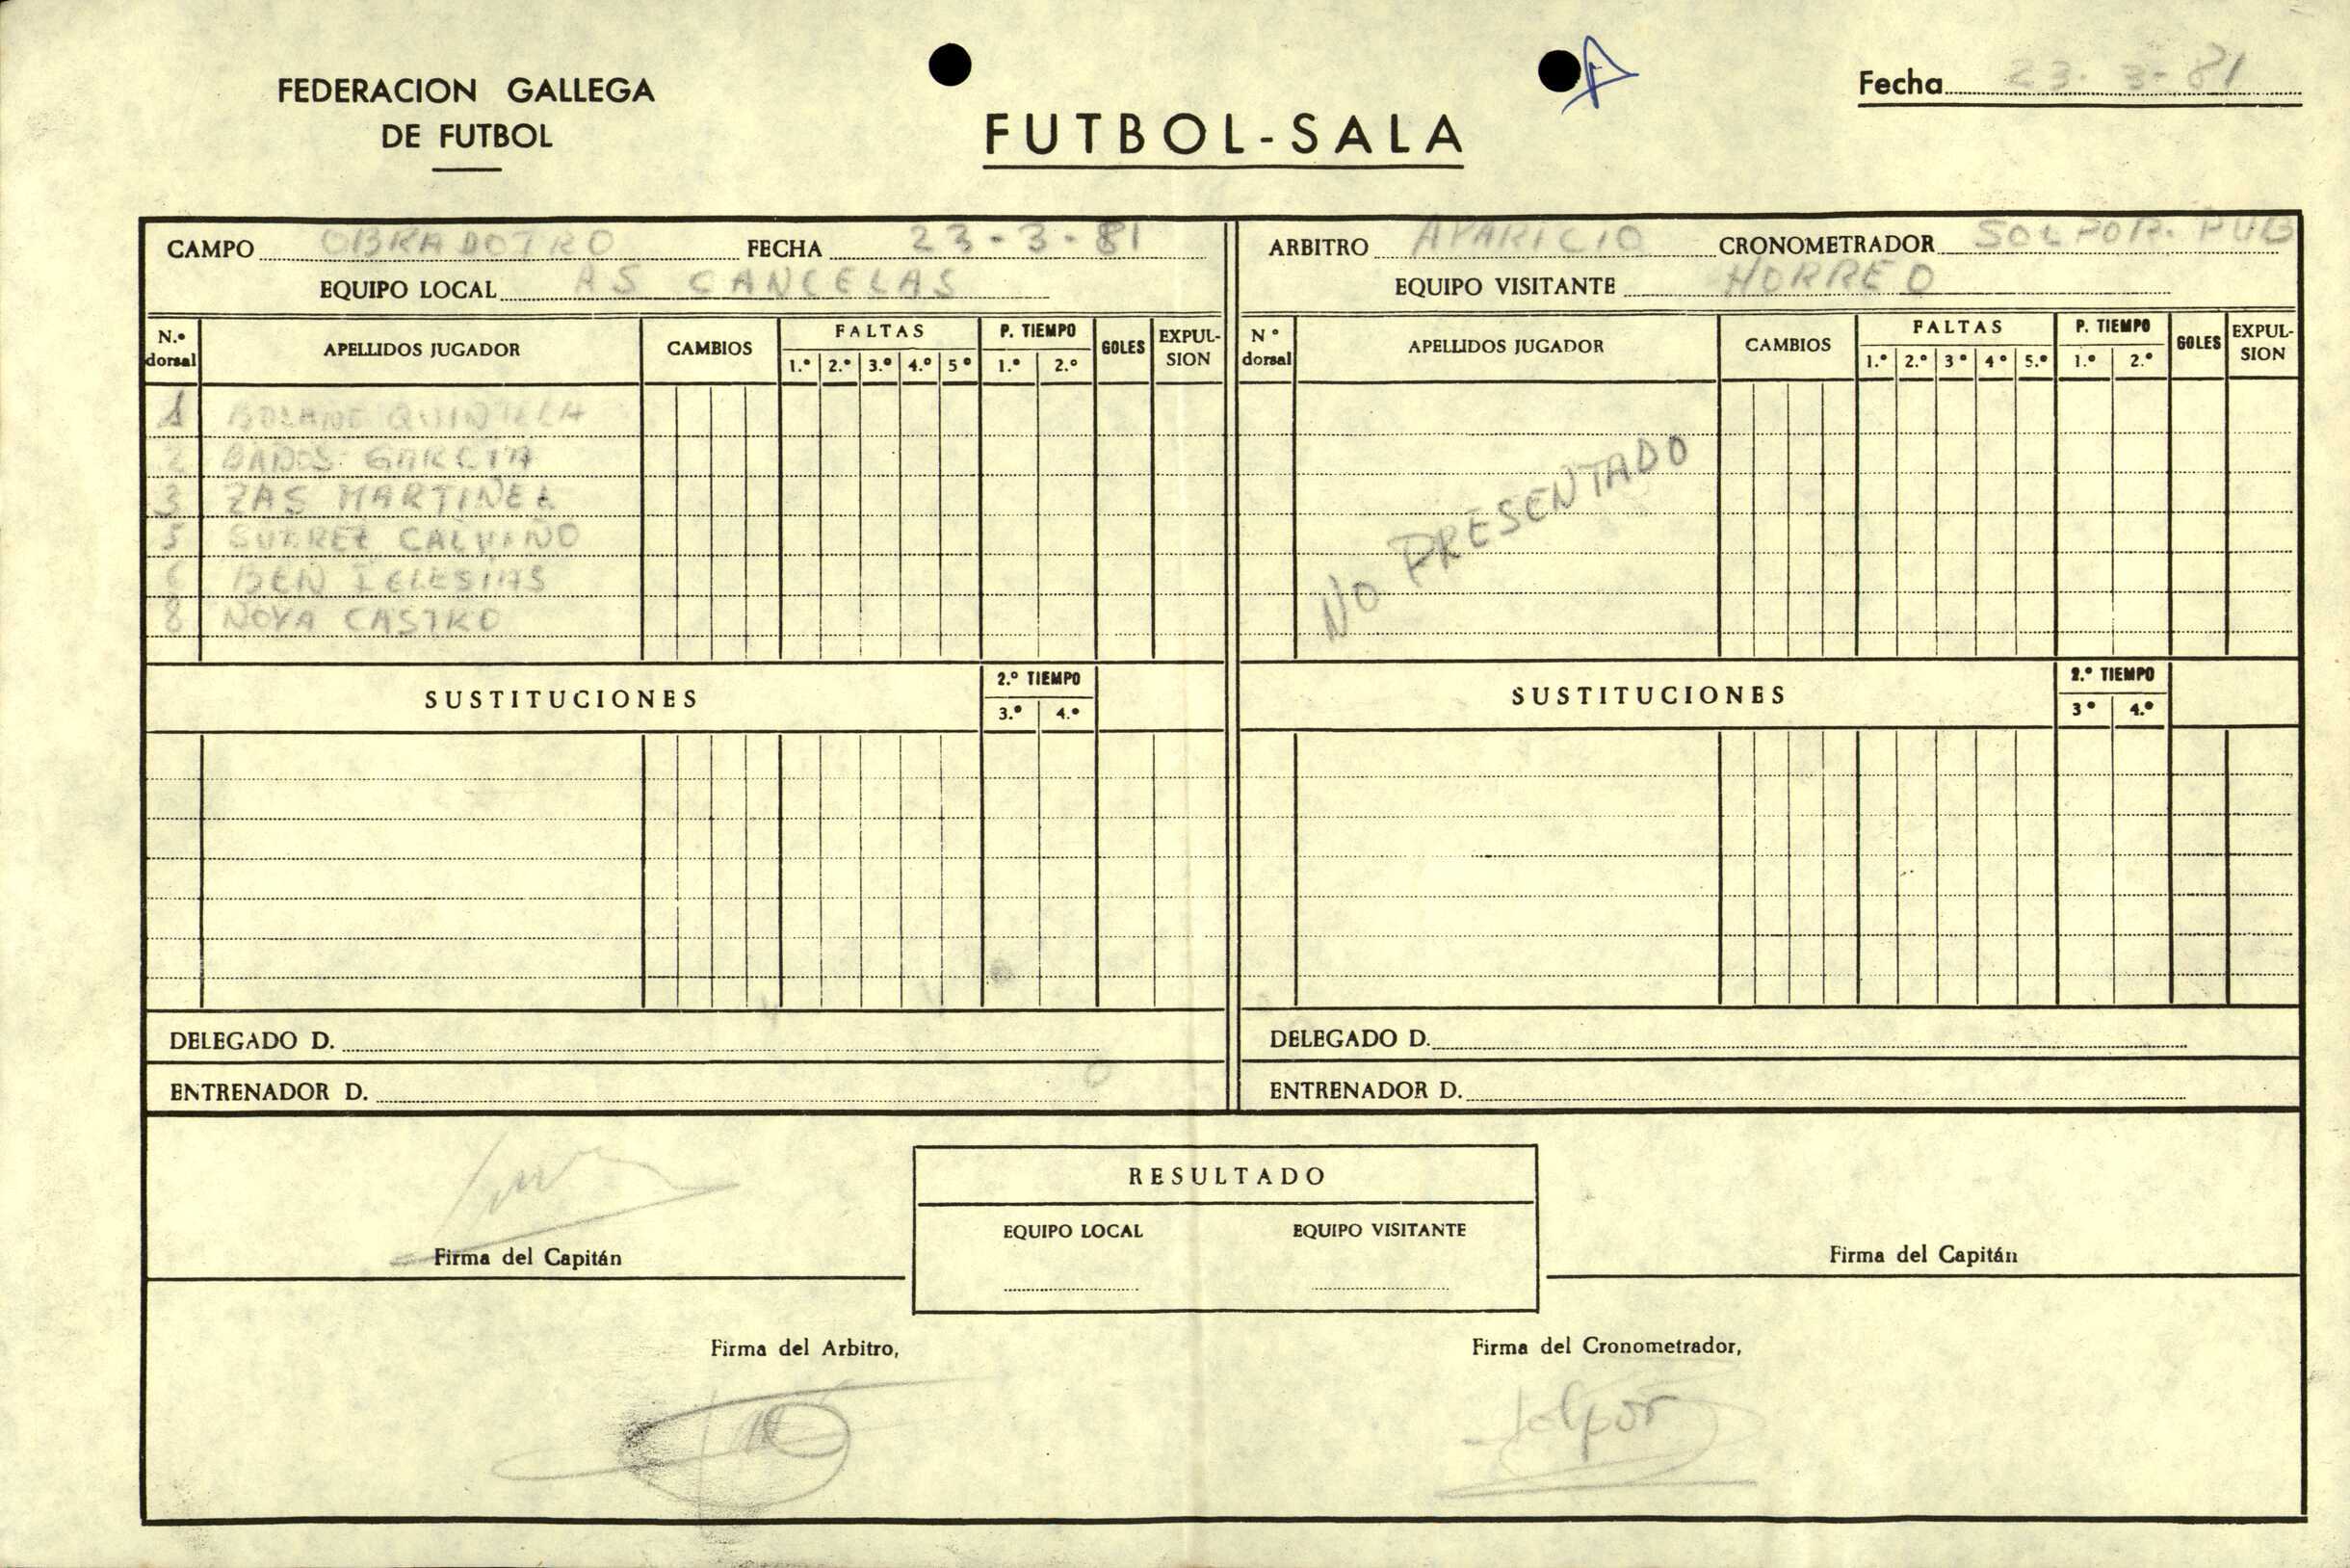 FEDERACION GALLEGA
DE FUTBOL
FUTBOL-SALA
Fecha 23-3-81
CAMPO OBRADOIRO FECHA 23-3-81
EQUIPO LOCAL AS CANCELAS
N.º dorsal APELLIDOS JUGADOR CAMBIOS FALTAS 1.º 2.º 3.º 4.º 5º P. TIEMPO 1.º 2.º GOLES EXPUL-SION
1 QUINTELA
2 GARCIA
3 ZAS MARTINEZ
5 SUAREZ CALVIÑO
6 BEN IGLESIAS
8 NOYA CASTRO
SUSTITUCIONES 2.º TIEMPO 3.º 4.º
DELEGADO D.
ENTRENADOR D.
ARBITRO APARICIO CRONOMETRADOR SOLPOR. PUB
EQUIPO VISITANTE HORREO
Nº dorsal APELLIDOS JUGADOR CAMBIOS FALTAS 1.º 2.º 3º 4º 5.º P. TIEMPO 1.º 2.º GOLES EXPUL-SION
NO PRESENTADO
SUSTITUCIONES 2.º TIEMPO 3º 4.º
DELEGADO D.
ENTRENADOR D.
Firma del Capitán
RESULTADO
EQUIPO LOCAL EQUIPO VISITANTE
Firma del Capitán
Firma del Arbitro,
Firma del Cronometrador,
Solpor